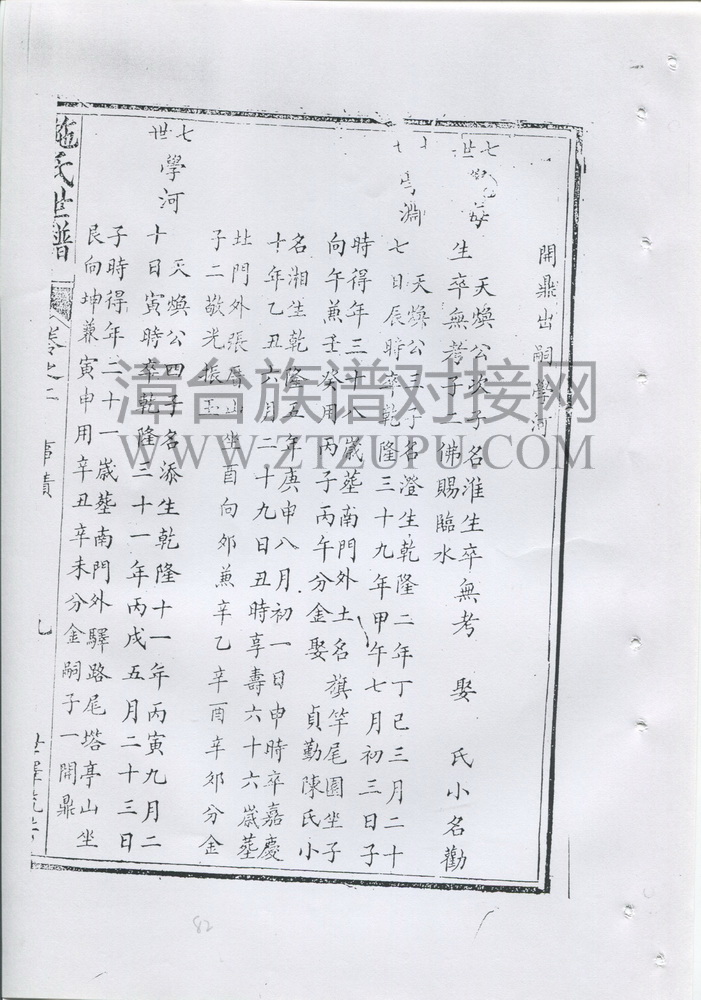 開鼎出嗣學河
七世學海
天煥公次子名淮生卒無考 娶 氏小名勸
生卒無考子二佛賜臨水
淵
天煥公三子名澄生乾隆二年丁巳三月二十
七日辰時卒乾隆三十九年甲午七月初三日子
時得年三十八歲塟南門外土名旗竿尾園坐子
向午兼壬癸用丙子丙午分金娶 貞勤陳氏小
名湘生乾隆五年庚申八月初一日申時卒嘉慶
十年乙丑六月二十九日丑時享壽六十六歲塟
北門外張厝山坐酉向夘兼辛乙辛酉辛夘分金
子二敬光振玉
七世學河
天煥公四子名添生乾隆十一年丙寅九月二
十日寅時卒乾隆三十一年丙戌五月二十三日
子時得年二十一歲塟南門外驛路尾塔亭山坐
艮向坤兼寅申用辛丑辛未分金嗣子一開鼎
施氏世譜
卷之二
事蹟
九
漳台族谱对接网
WWW.ZTZUPU.COM
82